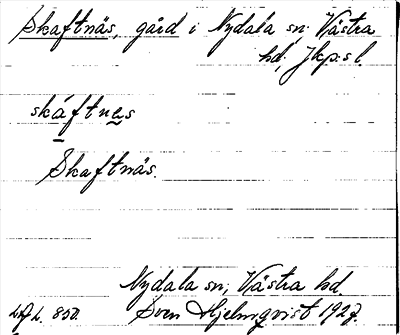 Skaftnäs, gård i Nydala sn. Västra
hd, Jkp:s l.
skáftnes
Skaftnäs.
Nydala sn, Västra hd.
Sven Hjelmqvist 1927.
850.